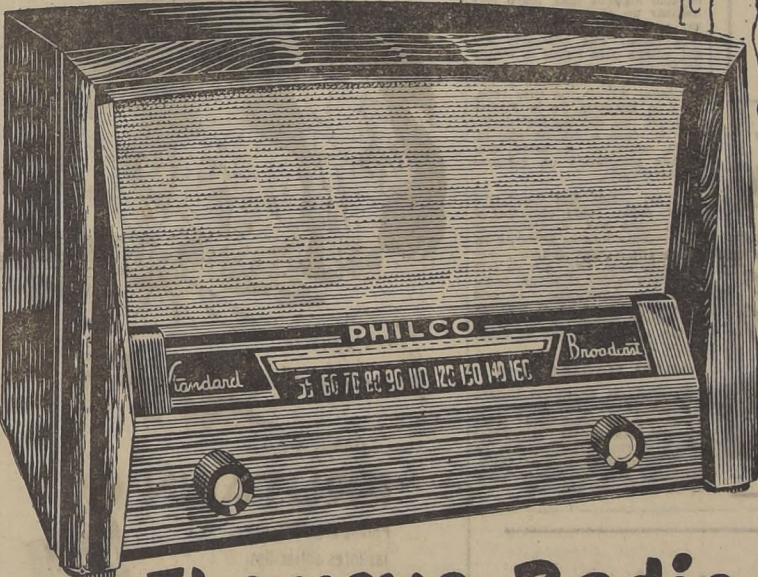 C
PHILCO
Standard
Broadcast
55 60 70 80 90 110 120 130 140 160